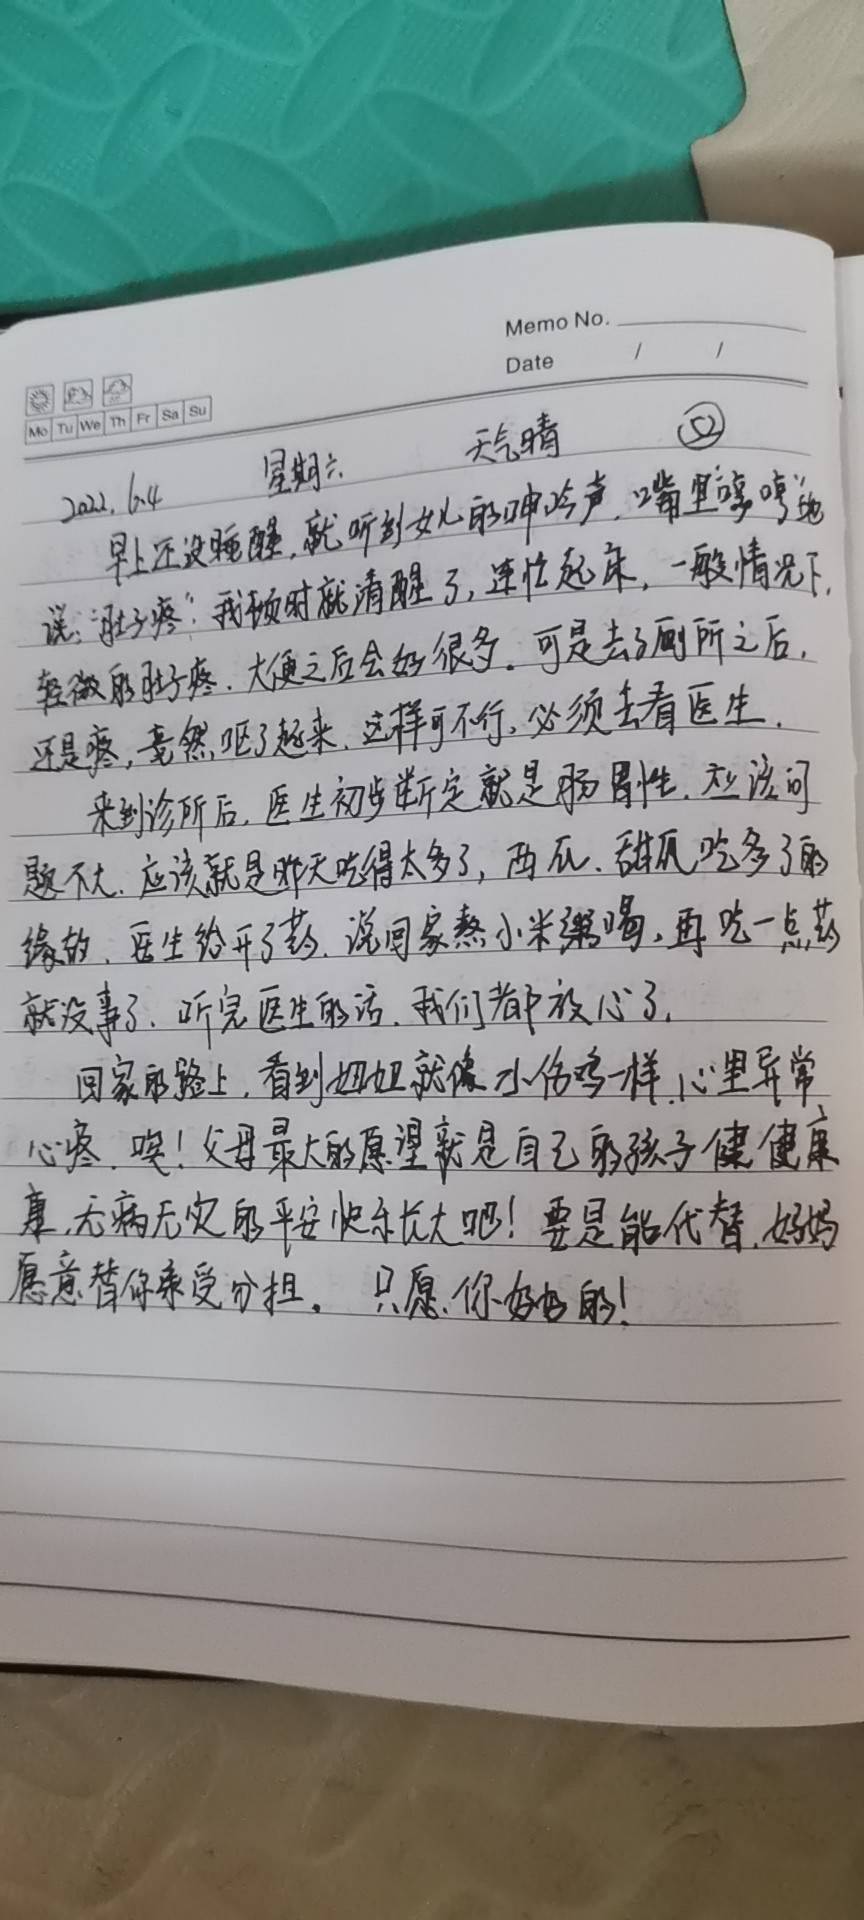 Memo No.
Date / /
Mo Tu We Th Fr Sa Su
2022.6.4 星期六 天气晴 52
早上还没睡醒,就听到女儿的呻吟声,嘴里“哼哼”地
说:“肚子疼”.我顿时就清醒了,连忙起床,一般情况下,
轻微的肚子疼,大便之后会好很多。可是去了厕所之后,
还是疼,竟然呕了起来,这样可不行,必须去看医生.
来到诊所后,医生初步断定就是肠胃性,应该问
题不大,应该就是昨天吃得太多了,西瓜、甜瓜吃多了的
缘故,医生给开了药,说回家熬小米粥喝,再吃一点药
就没事了,听完医生的话,我们都放心了.
回家的路上,看到妞妞就像小伤鸡一样,心里异常
心疼,唉!父母最大的愿望就是自己的孩子健健康
康,无病无灾的平安快乐长大吧!要是能代替,妈妈
愿意替你承受分担。只愿你好好的!